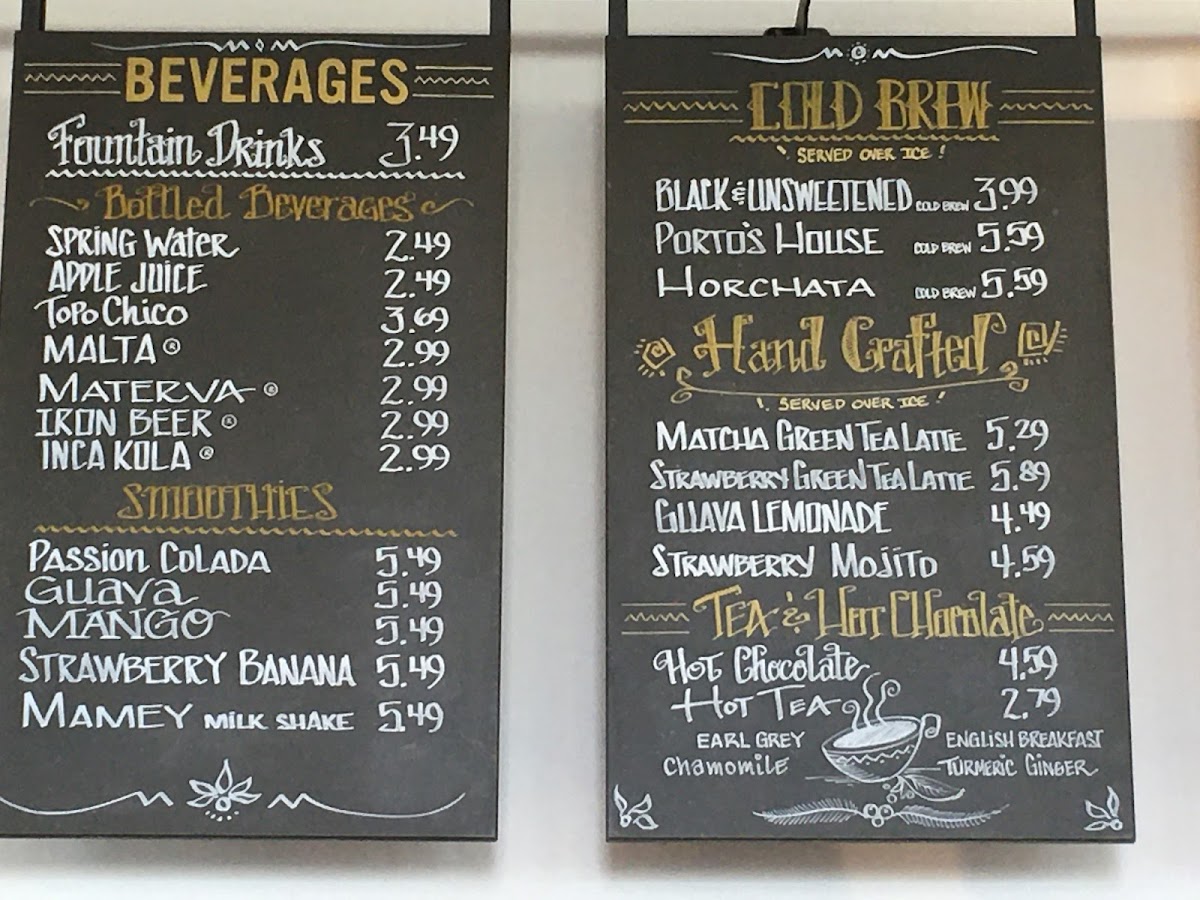 BEVERAGES
Fountain Drinks 3.49
Bottled Beverages
SPRING Water 2.49
APPLE JUICE 2.49
Topo Chico 3.69
MALTA ® 2.99
MATERVA ® 2.99
IRON BEER ® 2.99
INCA KOLA ® 2.99
SMOOTHIES
PASSION COLADA 5.49
Guava 5.49
MANGO 5.49
STRAWBERRY BANANA 5.49
MAMEY MILK SHAKE 5.49
COLD BREW
SERVED OVER ICE!
BLACK & UNSWEETENED COLD BREW 3.99
PORTO'S HOUSE COLD BREW 5.59
HORCHATA COLD BREW 5.59
Hand Crafted
! SERVED OVER ICE!
MATCHA GREEN TEA LATTE 5.29
STRAWBERRY GREEN TEA LATTE 5.89
GUAVA LEMONADE 4.49
STRAWBERRY MOJITO 4.59
TEA & HOT CHOCOLATE
Hot Chocolate 4.59
HOT TEA 2.79
EARL GREY ENGLISH BREAKFAST
Chamomile TURMERIC GINGER